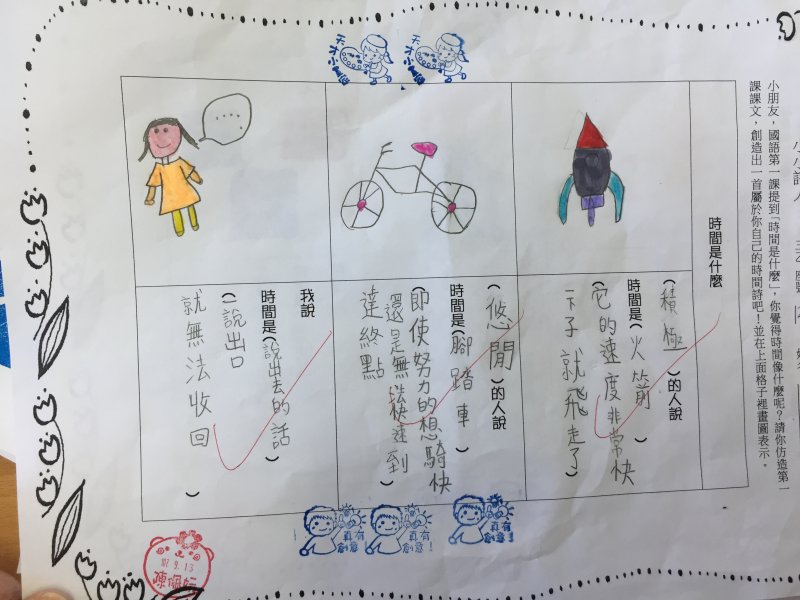 小朋友，國語第一課提到「時間是什麼」，你覺得時間像什麼呢？請你仿造第一
課課文，創造出一首屬於你自己的時間詩吧！並在上面格子裡畫圖表示。
時間是什麼
（積極）的人說
時間是（火箭）
（它的速度非常快
一下子就飛走了）
（悠閒）的人說
時間是（腳踏車）
（即使努力的想騎快
還是無法快速到
達終點）
我說
時間是（說出去的話）
（一說出口
就無法收回）
真有創意！
真有創意！
真有創意！
9.13